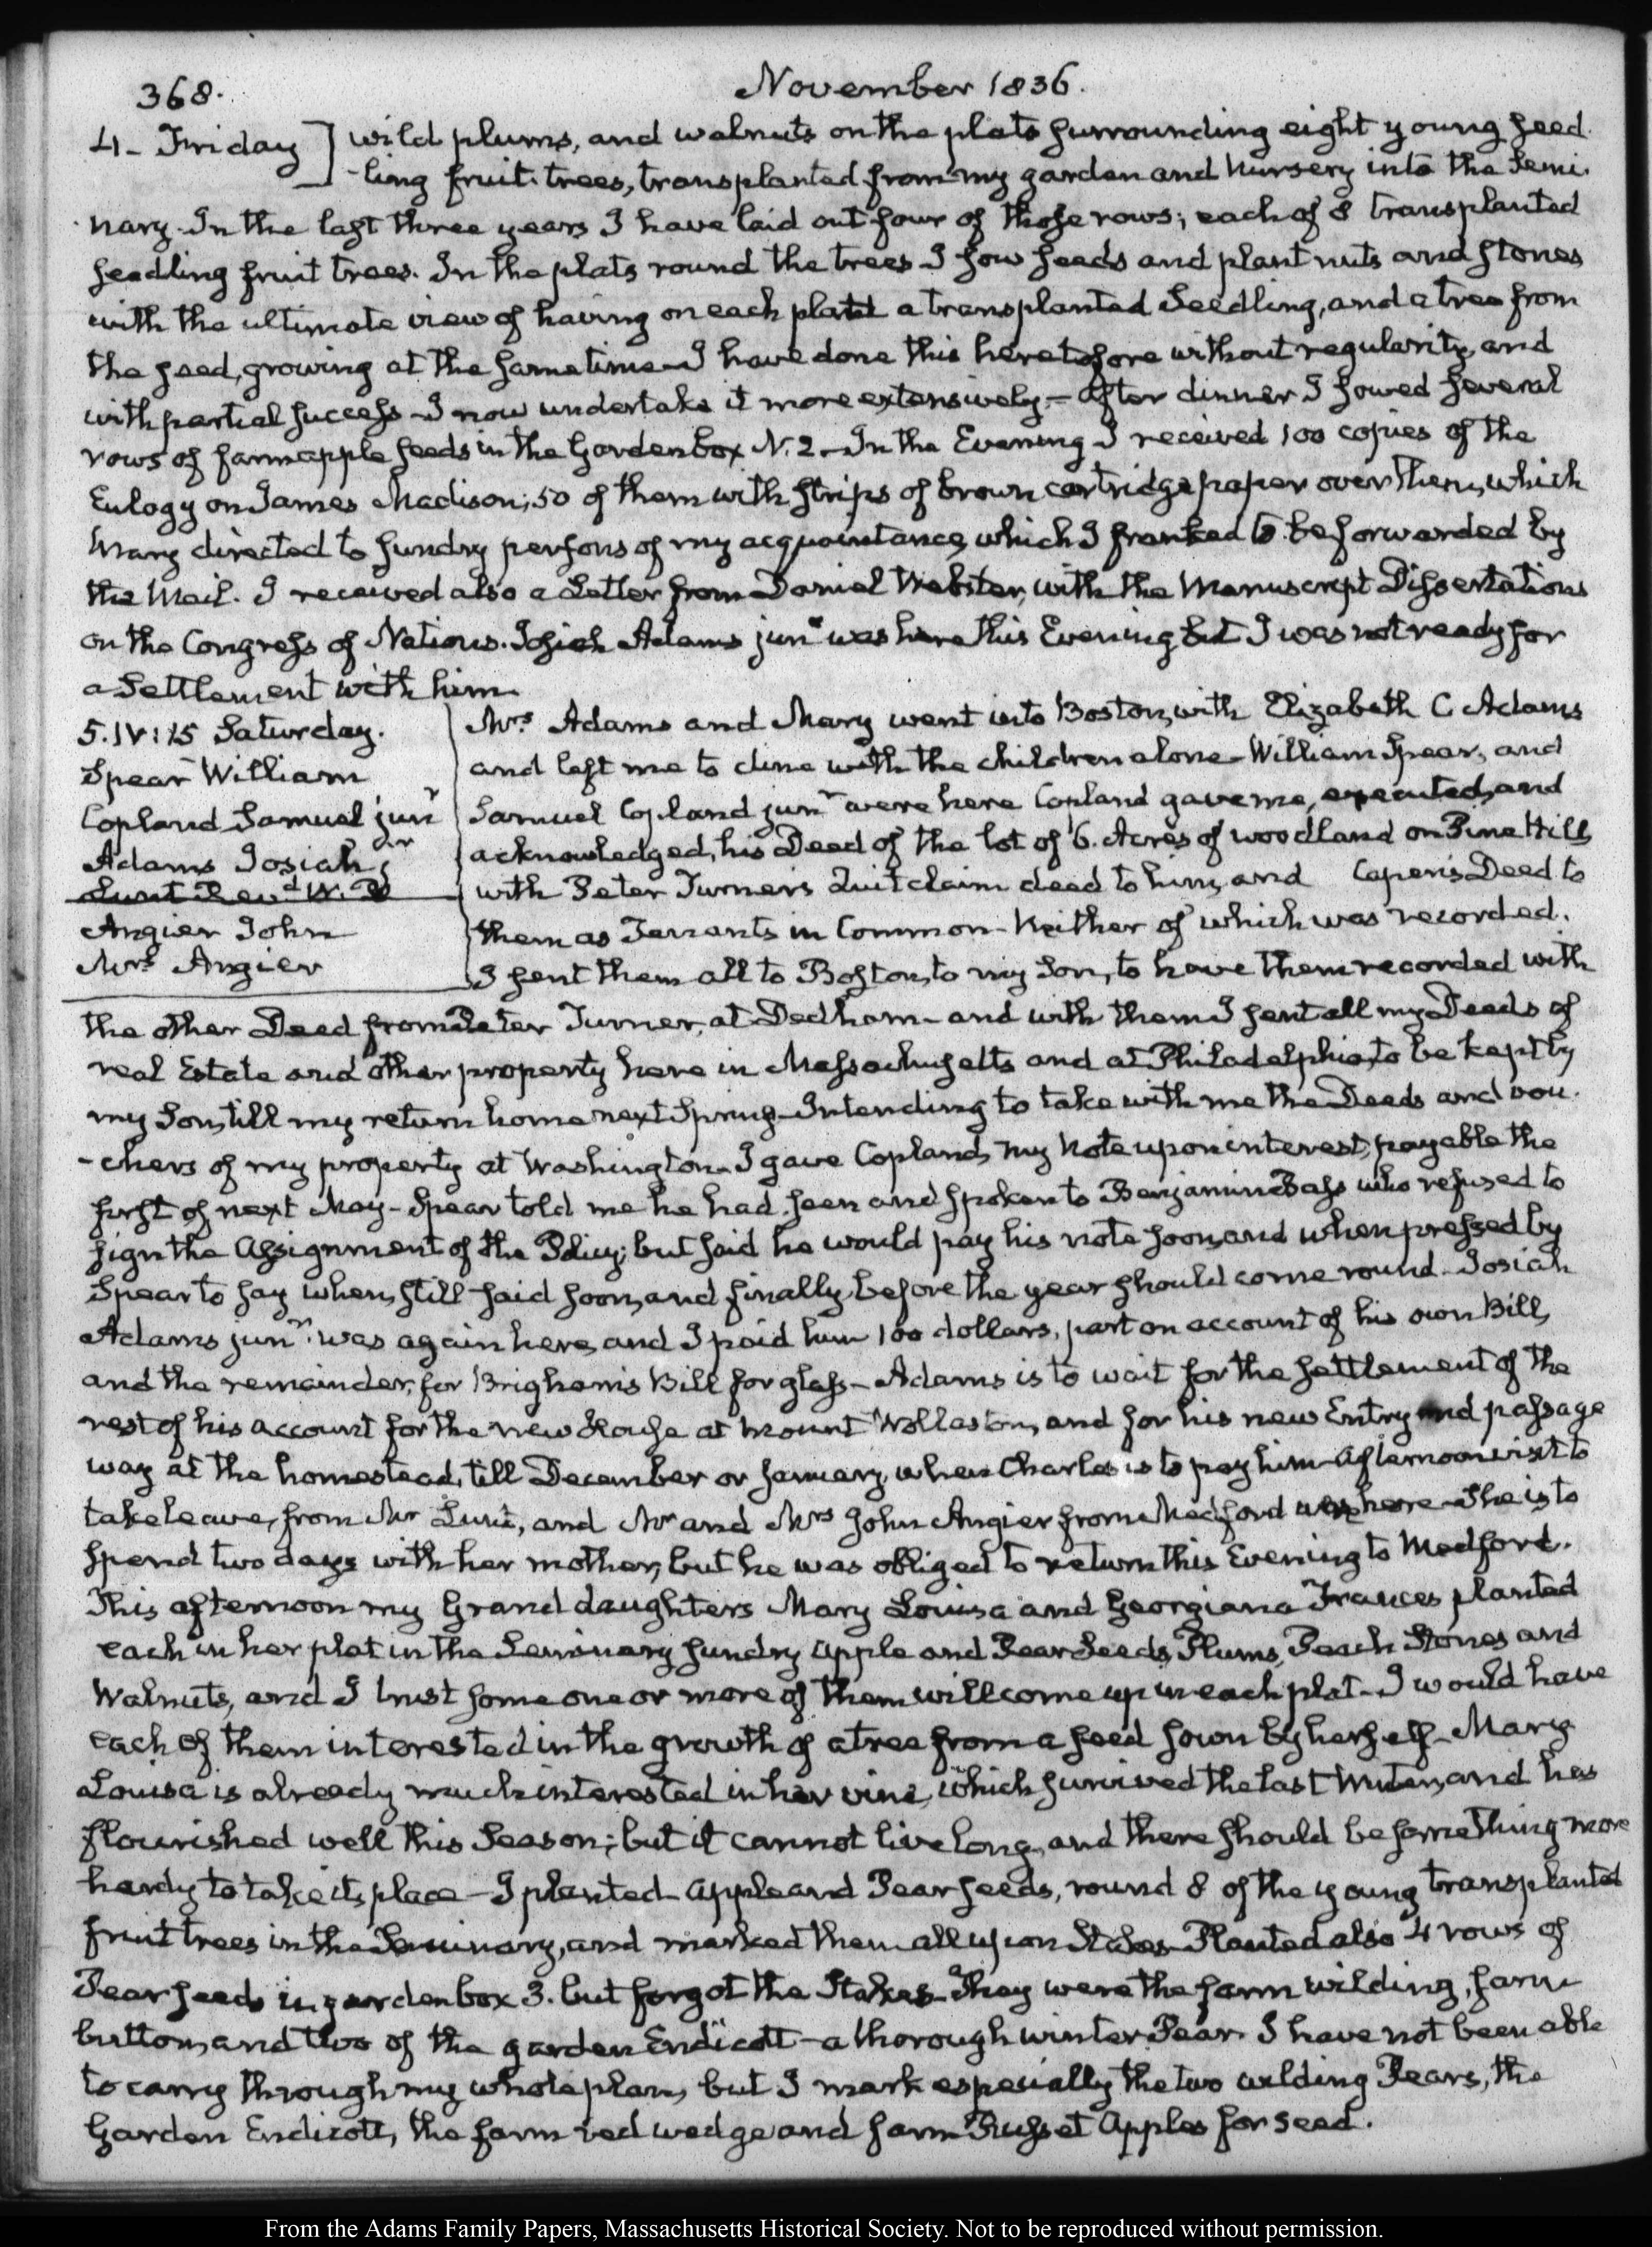 368.
November 1836.
4 - Friday ] wild plums, and walnuts on the plats surrounding eight young seed
-ling fruit trees, transplanted from my garden and Nursery into the Semi-
nary. In the last three years I have laid out four of those rows; each of 8 transplanted
seedling fruit trees. In the plats round the trees I sow seeds and plant nuts and stones
with the ultimate view of having on each plat a transplanted Seedling, and a tree from
the seed, growing at the same time - I have done this heretofore without regularity, and
with partial success - I now undertake it more extensively - After dinner I sowed several
rows of farm apple seeds in the Garden box N. 2 - In the Evening I received 100 copies of the
Eulogy on James Madison; 50 of them with strips of brown cartridge paper over them, which
Mary directed to sundry persons of my acquaintance, which I franked to be forwarded by
the Mail. I received also a Letter from Daniel Webster, with the Manuscript Dissertations
on the Congress of Nations. Josiah Adams junr. was here this Evening, but I was not ready for
a Settlement with him.
5. IV:15 Saturday.
Spear William
Copland Samuel junr
Adams Josiah jr
Lunt Revd W. P
Angier John
Mrs Angier
Mrs Adams and Mary went into Boston, with Elizabeth C Adams
and left me to dine with the children alone - William Spear, and
Samuel Copland junr were here Copland gave me, executed, and
acknowledged, his Deed of the lot of 6. Acres of woodland on Pine Hill,
with Peter Turner's Quit claim deed to him, and Capen's Deed to
them as Tenants in Common - Neither of which was recorded.
I sent them all to Boston, to my Son, to have them recorded with
the other Deed from Peter Turner, at Dedham - and with them I sent all my Deeds of
real Estate and other property here in Massachusetts and at Philadelphia, to be kept by
my Son, till my return home next Spring - Intending to take with me the Deeds and vou-
-chers of my property at Washington - I gave Copland, my Note upon interest, payable the
first of next May - Spear told me he had seen and spoken to Benjamin Bass who refused to
sign the Assignment of the Policy; but said he would pay his note soon, and when pressed by
Spear to say when, still said soon, and finally before the year should come round - Josiah
Adams junr. was again here, and I paid him 100 dollars, part on account of his own Bill,
and the remainder, for Brigham's Bill for glass - Adams is to wait for the settlement of the
rest of his account for the new House at Mount Wollaston, and for his new Entry and passage
way at the homestead, till December or January, when Charles is to pay him - Afternoon visit to
take leave, from Mr Lunt, and Mr and Mrs John Angier from Medford were here - She is to
spend two days with her mother, but he was obliged to return this Evening to Medford.
This afternoon my Grand daughters Mary Louisa and Georgiana Frances planted
each in her plat in the Seminary sundry apple and Pear Seeds, Plums, Peach Stones and
Walnuts, and I trust some one or more of them will come up in each plat - I would have
each of them interested in the growth of a tree from a seed sown by herself - Mary
Louisa is already much interested in her vine, which survived the last Winter, and has
flourished well this Season; but it cannot live long, and there should be something more
hardy to take its place - I planted apple and Pear seeds, round 8 of the young transplanted
fruit trees in the Seminary, and marked them all upon Stakes - Planted also 4 rows of
Pear seeds in garden box 3. but forgot the Stakes - They were the farm wilding, farm
button, and two of the garden Endicott - a thorough winter Pear. I have not been able
to carry through my whole plan, but I mark especially the two wilding Pears, the
Garden Endicott, the farm red wedge and farm Russet Apples for seed.
From the Adams Family Papers, Massachusetts Historical Society. Not to be reproduced without permission.